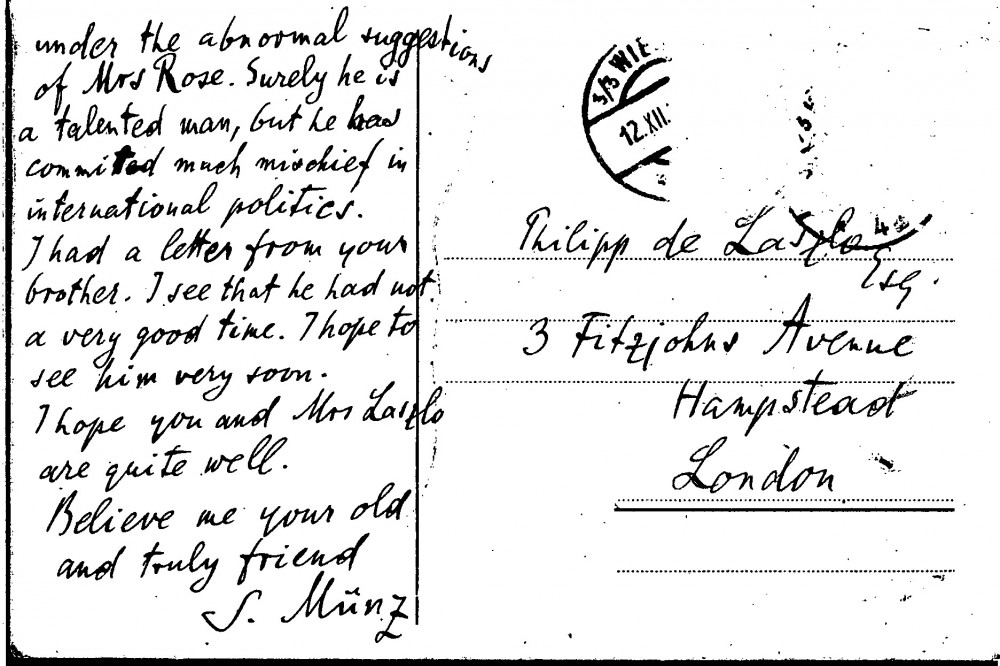 under the abnormal suggestions
of Mrs Rose. Surely he is
a talented man, but he has
commited much mischief in
international politics.
I had a letter from your
brother. I see that he had not
a very good time. I hope to
see him very soon.
I hope you and Mrs Laszlo
are quite well.
Believe me your old
and truly friend
S. Münz
3/3 WIE
12.XII.
Philipp de Laszlo
Esq.
3 Fitzjohns Avenue
Hampstead
London